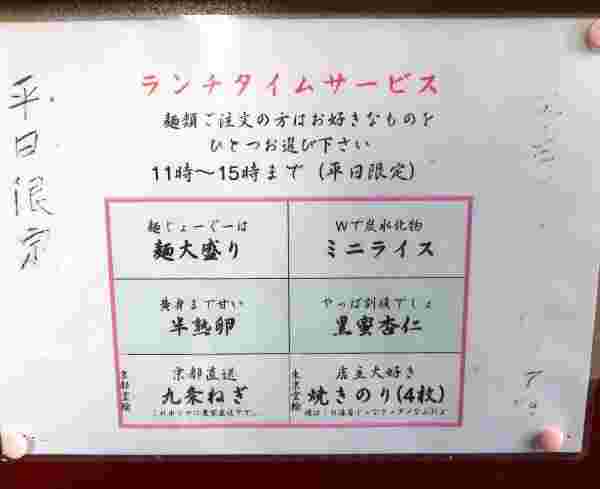 平日限定
ランチタイムサービス
麺類ご注文の方はお好きなものを
ひとつお選び下さい
11時〜15時まで (平日限定)
麺じょーぐーは
麺大盛り
Wで炭水化物
ミニライス
黄身まで甘い
半熟卵
やっぱ別腹でしょ
黒蜜杏仁
京都直送
九条ねぎ
店主大好き
焼きのり(4枚)